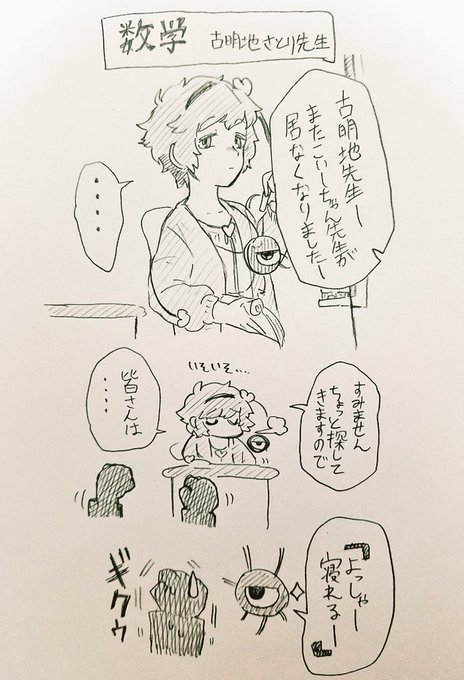 数学 古明地さとり先生
古明地先生ー
またこいしちゃん先生が
居なくなりましたー
・・・・
いそいそ・・・・
すみません
ちょっと探して
きますので
皆さんは
・・・・
『よっしゃー
寝れるー』
ギクゥ